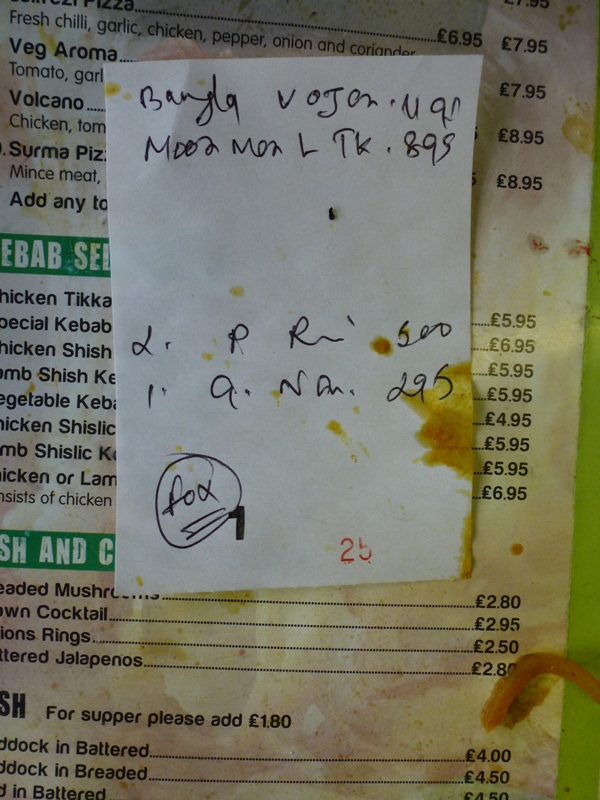 Pizza
£7.95
Fresh chilli, garlic, chicken, pepper, onion and coriander £6.95 £7.95
Veg Aroma
Tomato, garl £7.95
Volcano
Chicken, tom £8.95
Surma Piz
Mince meat, £8.95
Add any to
Bangla
Moon L TK. 895
EBAB SEL
hicken Tikka £5.95
pecial Kebab £6.95
hicken Shish £5.95
amb Shish Ke £5.95
egetable Keba £4.95
hicken Shislic £5.95
mb Shislic K £5.95
icken or Lam £6.95
nsists of chicken
2. P 500
1. 295
1
25
SH AND C
eaded Mushrooms £2.80
own Cocktail £2.95
ions Rings £2.50
ttered Jalapenos £2.80
SH For supper please add £1.80
ddock in Battered £4.00
ddock in Breaded £4.50
d in Battered £4.50